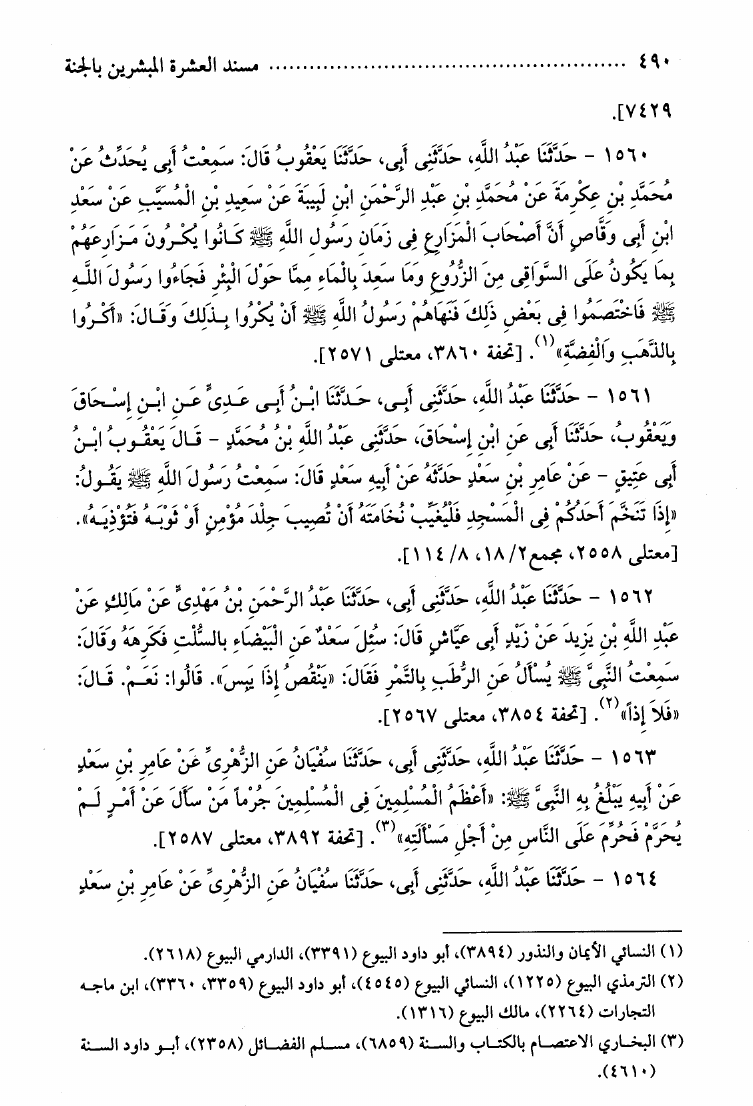 ٤٩٠ ........................................................ مسند العشرة المبشرين بالجنة
٧٤٢٩].
١٥٦٠ - حَدَّثَنَا عَبْدُ اللَّهِ، حَدَّثَنِى أَبِى، حَدَّثَنَا يَعْقُوبُ قَالَ: سَمِعْتُ أَبِى يُحَدِّثُ عَنْ
مُحَمَّدِ بْنِ عِكْرِمَةَ عَنْ مُحَمَّدِ بْنِ عَبْدِ الرَّحْمَنِ ابْنِ لَبِيبَةَ عَنْ سَعِيدِ بْنِ الْمُسَيَّبِ عَنْ سَعْدِ
ابْنِ أَبِى وَقَّاصٍ أَنَّ أَصْحَابَ الْمَزَارِعِ فِى زَمَانِ رَسُولِ اللَّهِ ﷺ كَانُوا يُكْرُونَ مَزَارِعَهُمْ
بِمَا يَكُونُ عَلَى السَّوَاقِى مِنَ الزُّرُوعِ وَمَا سَعِدَ بِالْمَاءِ مِمَّا حَوْلَ الْبِئْرِ فَجَاءُوا رَسُولَ اللَّهِ
ﷺ فَاخْتَصَمُوا فِى بَعْضِ ذَلِكَ فَنَهَاهُمْ رَسُولُ اللَّهِ ﷺ أَنْ يُكْرُوا بِذَلِكَ وَقَالَ: «أَكْرُوا
بِالذَّهَبِ وَالْفِضَّةِ»(١). [تحفة ٣٨٦٠، معتلى ٢٥٧١].
١٥٦١ - حَدَّثَنَا عَبْدُ اللَّهِ، حَدَّثَنِى أَبِى، حَدَّثَنَا ابْنُ أَبِى عَدِىٍّ عَنِ ابْنِ إِسْحَاقَ
وَيَعْقُوبُ، حَدَّثَنَا أَبِى عَنِ ابْنِ إِسْحَاقَ، حَدَّثَنِى عَبْدُ اللَّهِ بْنُ مُحَمَّدٍ - قَالَ يَعْقُوبُ ابْنُ
أَبِى عَتِيقٍ - عَنْ عَامِرِ بْنِ سَعْدٍ حَدَّثَهُ عَنْ أَبِيهِ سَعْدٍ قَالَ: سَمِعْتُ رَسُولَ اللَّهِ ﷺ يَقُولُ:
«إِذَا تَنَخَّمَ أَحَدُكُمْ فِى الْمَسْجِدِ فَلْيُغَيِّبْ نُخَامَتَهُ أَنْ تُصِيبَ جِلْدَ مُؤْمِنٍ أَوْ ثَوْبَهُ فَتُؤْذِيَهُ».
[معتلى ٢٥٥٨، مجمع٢/ ١٨، ٨/ ١١٤].
١٥٦٢ - حَدَّثَنَا عَبْدُ اللَّهِ، حَدَّثَنِى أَبِى، حَدَّثَنَا عَبْدُ الرَّحْمَنِ بْنُ مَهْدِىٍّ عَنْ مَالِكٍ عَنْ
عَبْدِ اللَّهِ بْنِ يَزِيدَ عَنْ زَيْدٍ أَبِى عَيَّاشٍ قَالَ: سُئِلَ سَعْدٌ عَنِ الْبَيْضَاءِ بِالسُّلْتِ فَكَرِهَهُ وَقَالَ:
سَمِعْتُ النَّبِىَّ ﷺ يُسْأَلُ عَنِ الرُّطَبِ بِالتَّمْرِ فَقَالَ: «يَنْقُصُ إِذَا يَبِسَ». قَالُوا: نَعَمْ. قَالَ:
«فَلاَ إِذاً»(٢). [تحفة ٣٨٥٤، معتلى ٢٥٦٧].
١٥٦٣ - حَدَّثَنَا عَبْدُ اللَّهِ، حَدَّثَنِى أَبِى، حَدَّثَنَا سُفْيَانُ عَنِ الزُّهْرِىِّ عَنْ عَامِرِ بْنِ سَعْدٍ
عَنْ أَبِيهِ يَبْلُغُ بِهِ النَّبِىَّ ﷺ: «أَعْظَمُ الْمُسْلِمِينَ فِى الْمُسْلِمِينَ جُرْماً مَنْ سَأَلَ عَنْ أَمْرٍ لَمْ
يُحَرَّمْ فَحُرِّمَ عَلَى النَّاسِ مِنْ أَجْلِ مَسْأَلَتِهِ»(٣). [تحفة ٣٨٩٢، معتلى ٢٥٨٧].
١٥٦٤ - حَدَّثَنَا عَبْدُ اللَّهِ، حَدَّثَنِى أَبِى، حَدَّثَنَا سُفْيَانُ عَنِ الزُّهْرِىِّ عَنْ عَامِرِ بْنِ سَعْدٍ
(١) النسائي الأيمان والنذور (٣٨٩٤)، أبو داود البيوع (٣٣٩١)، الدارمي البيوع (٢٦١٨).
(٢) الترمذي البيوع (١٢٢٥)، النسائي البيوع (٤٥٤٥)، أبو داود البيوع (٣٣٥٩، ٣٣٦٠)، ابن ماجه
التجارات (٢٢٦٤)، مالك البيوع (١٣١٦).
(٣) البخاري الاعتصام بالكتاب والسنة (٦٨٥٩)، مسلم الفضائل (٢٣٥٨)، أبو داود السنة
(٤٦١٠).